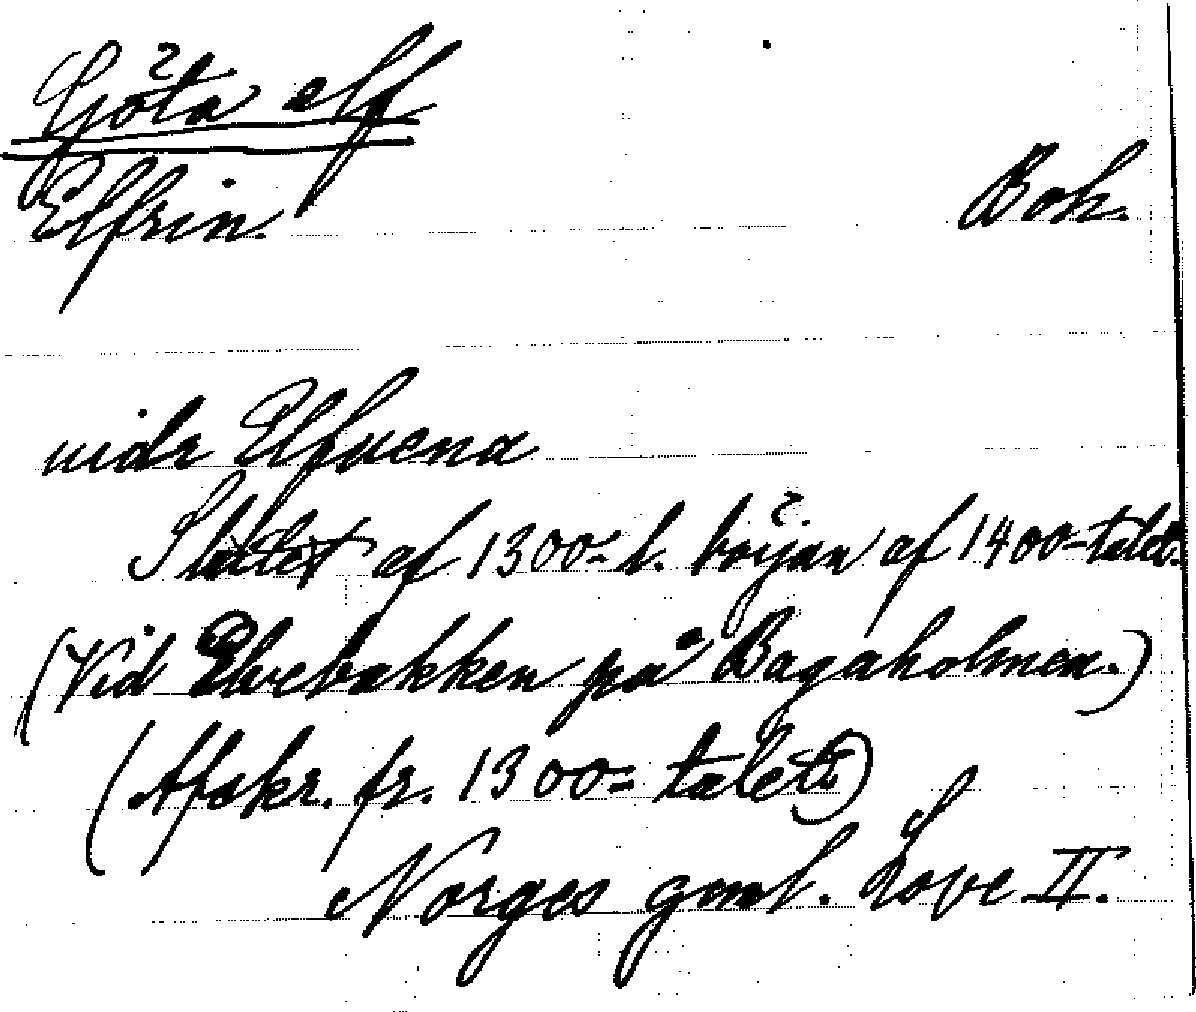 Göta elf
Elfrin. Boh.
uidr Elfuena
Slutet af 1300- l. början af 1400-talet.
(Vid Elvebakken på Bagaholmen.)
(Afskr. fr. 1300-talet)
Norges gml. Love II.